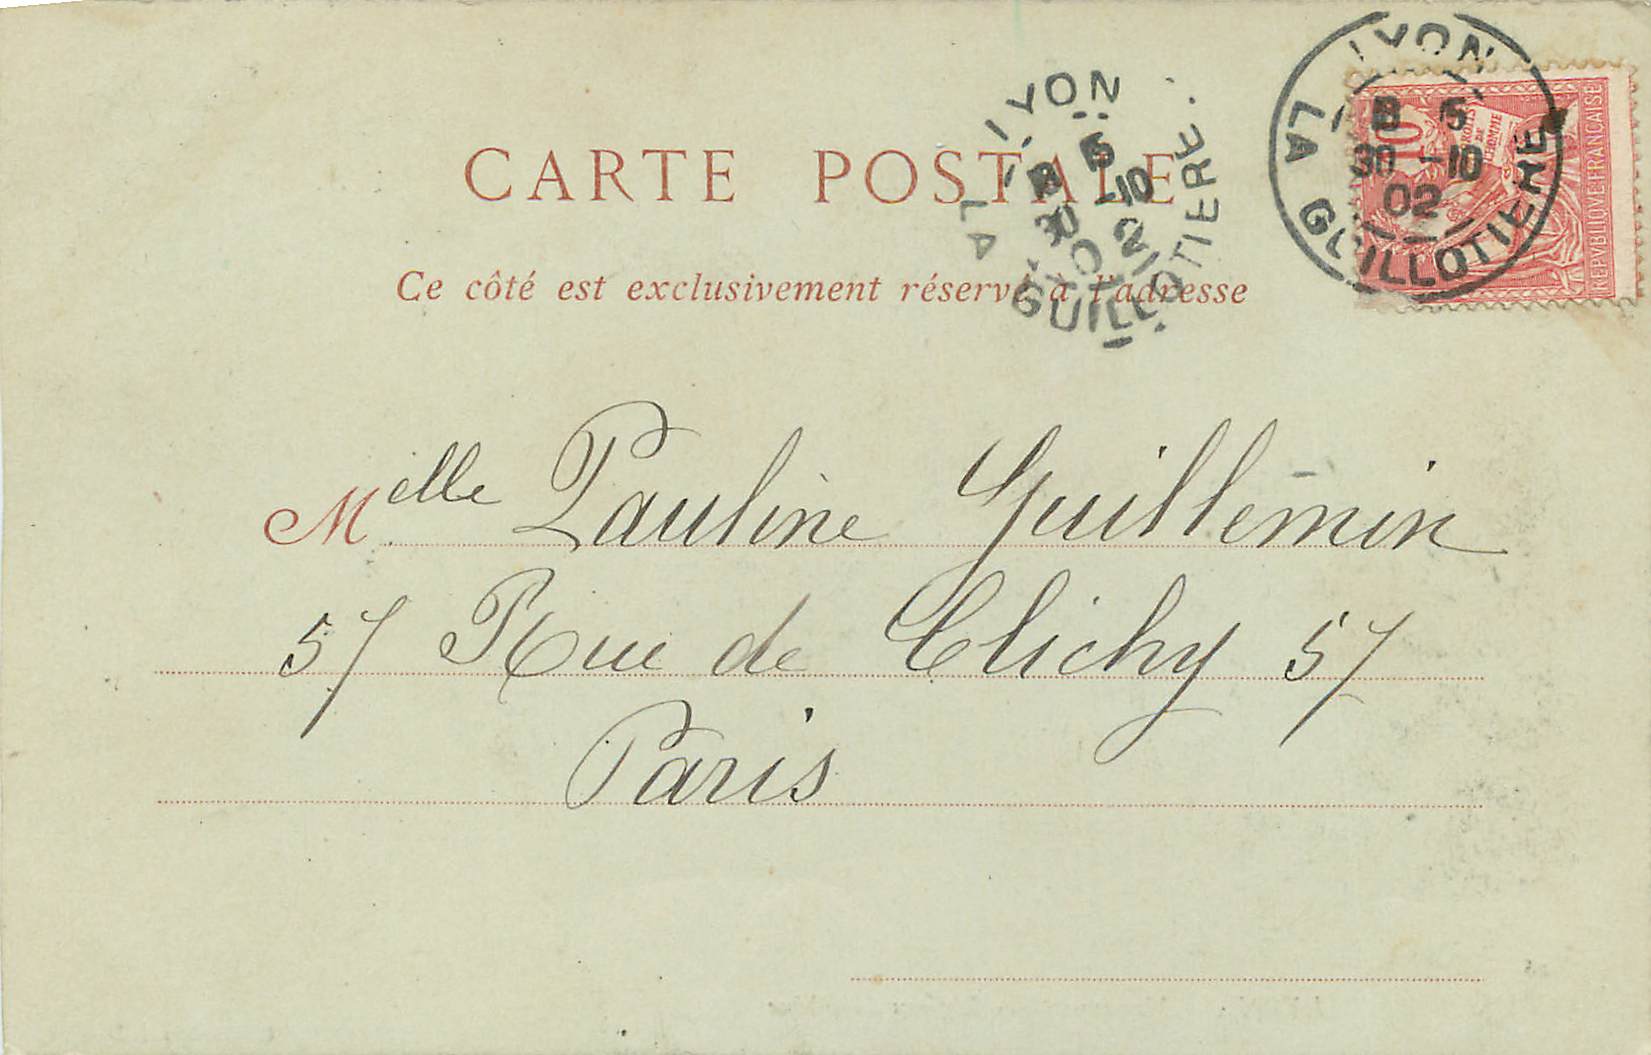 CARTE POSTALE
Ce côté est exclusivement réservé à l'adresse
LYON
5
30 -10
02
LA GUILLOTIERE
LYON
5
30 -10
02
LA GUILLOTIERE
10
DROITS
DE
L'HOMME
REPVBLIQVE FRANÇAISE
Melle Pauline Guillemin
57 Rue de Clichy 57
Paris